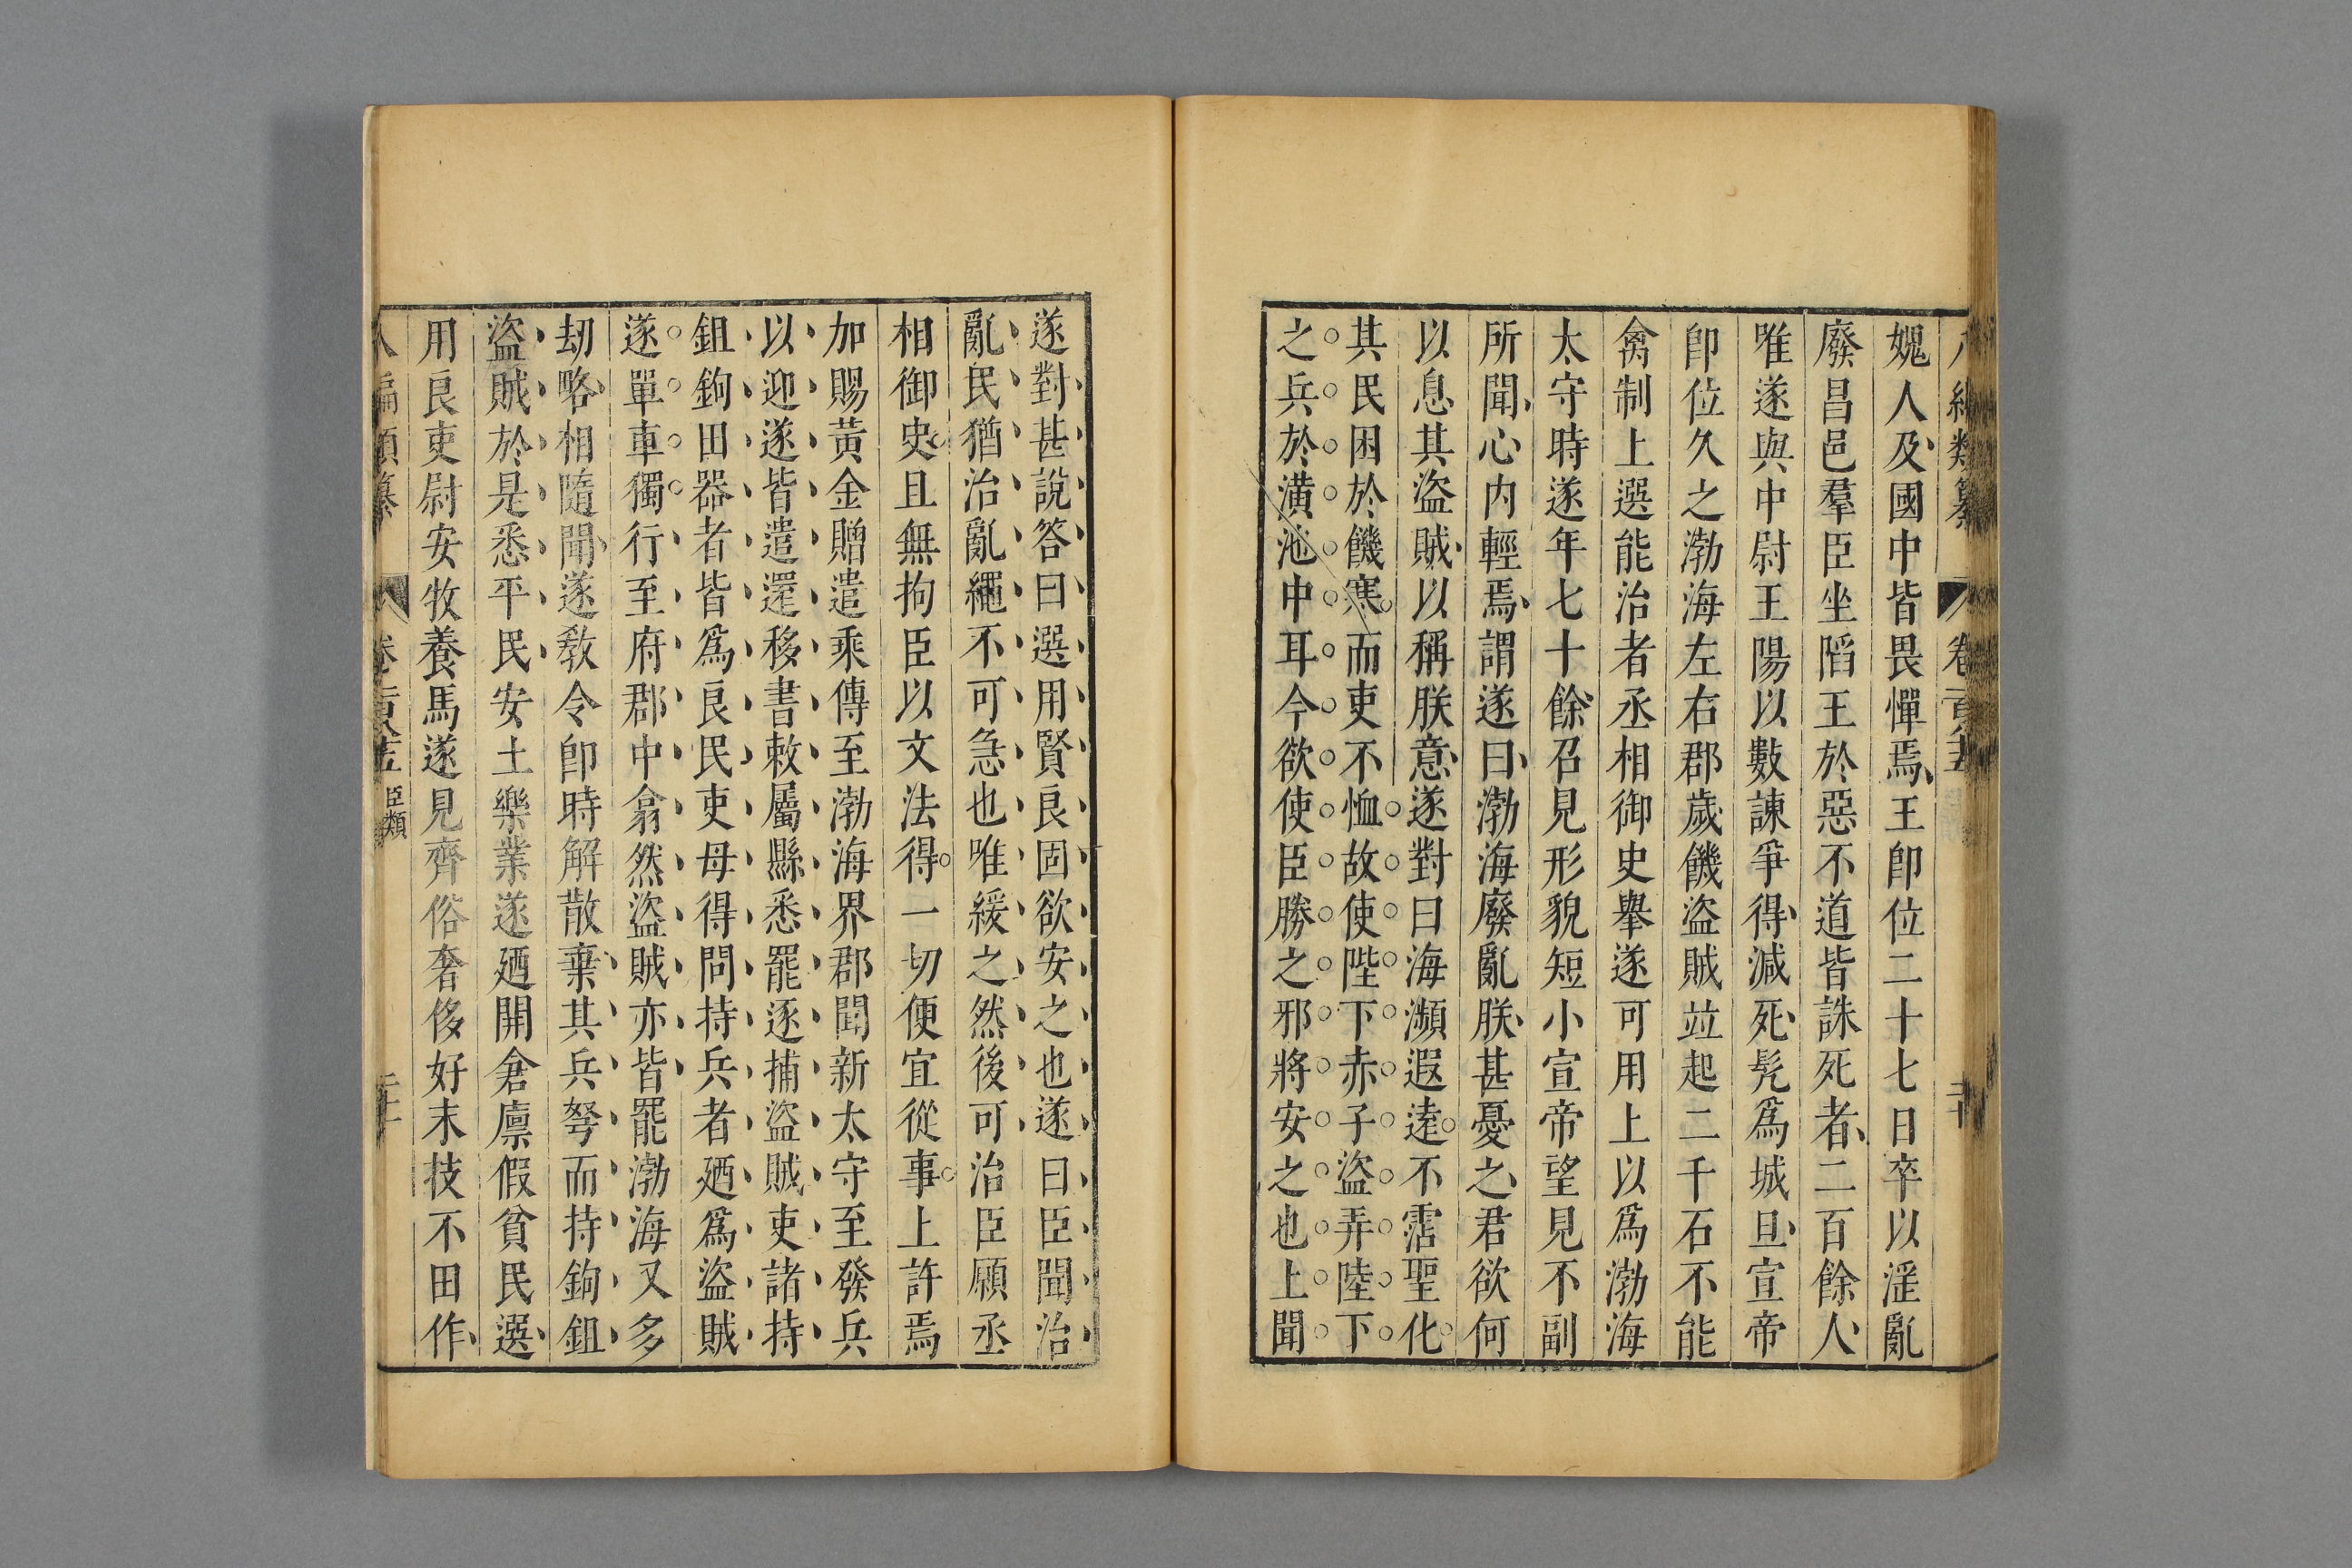 媿人及國中皆畏憚焉王卽位二十七日卒以淫亂
廢昌邑羣臣坐䧟王於惡不道皆誅死者二百餘人
唯遂與中尉王陽以數諫爭得減死髠爲城旦宣帝
卽位久之渤海左右郡歲饑盜賊竝起二千石不能
禽制上選能治者丞相御史舉遂可用上以爲渤海
太守時遂年七十餘召見形貌短小宣帝望見不副
所聞心內輕焉謂遂曰渤海廢亂朕甚憂之君欲何
以息其盜賊以稱朕意遂對曰海瀕遐遠不霑聖化
其民困於饑寒而吏不恤故使陛下赤子盜弄陸下
之兵於潢池中耳今欲使臣勝之邪將安之也上聞
遂對甚說答曰選用賢良固欲安之也遂曰臣聞治
亂民猶治亂繩不可急也唯緩之然後可治臣願丞
相御史且無拘臣以文法得一切便宜從事上許焉
加賜黃金贈遣乘傳至渤海界郡聞新太守至發兵
以迎遂皆遣還移書敕屬縣悉罷逐捕盜賊吏諸持
鉏鉤田器者皆爲良民吏母得問持兵者廼爲盜賊
遂單車獨行至府郡中翕然盜賊亦皆罷渤海又多
劫略相隨聞遂敎令卽時解散棄其兵弩而持鉤鉏
盜賊於是悉平民安土樂業遂廼開倉廩假貧民選
用良吏尉安牧養馬遂見齊俗奢侈好末技不田作
臣類